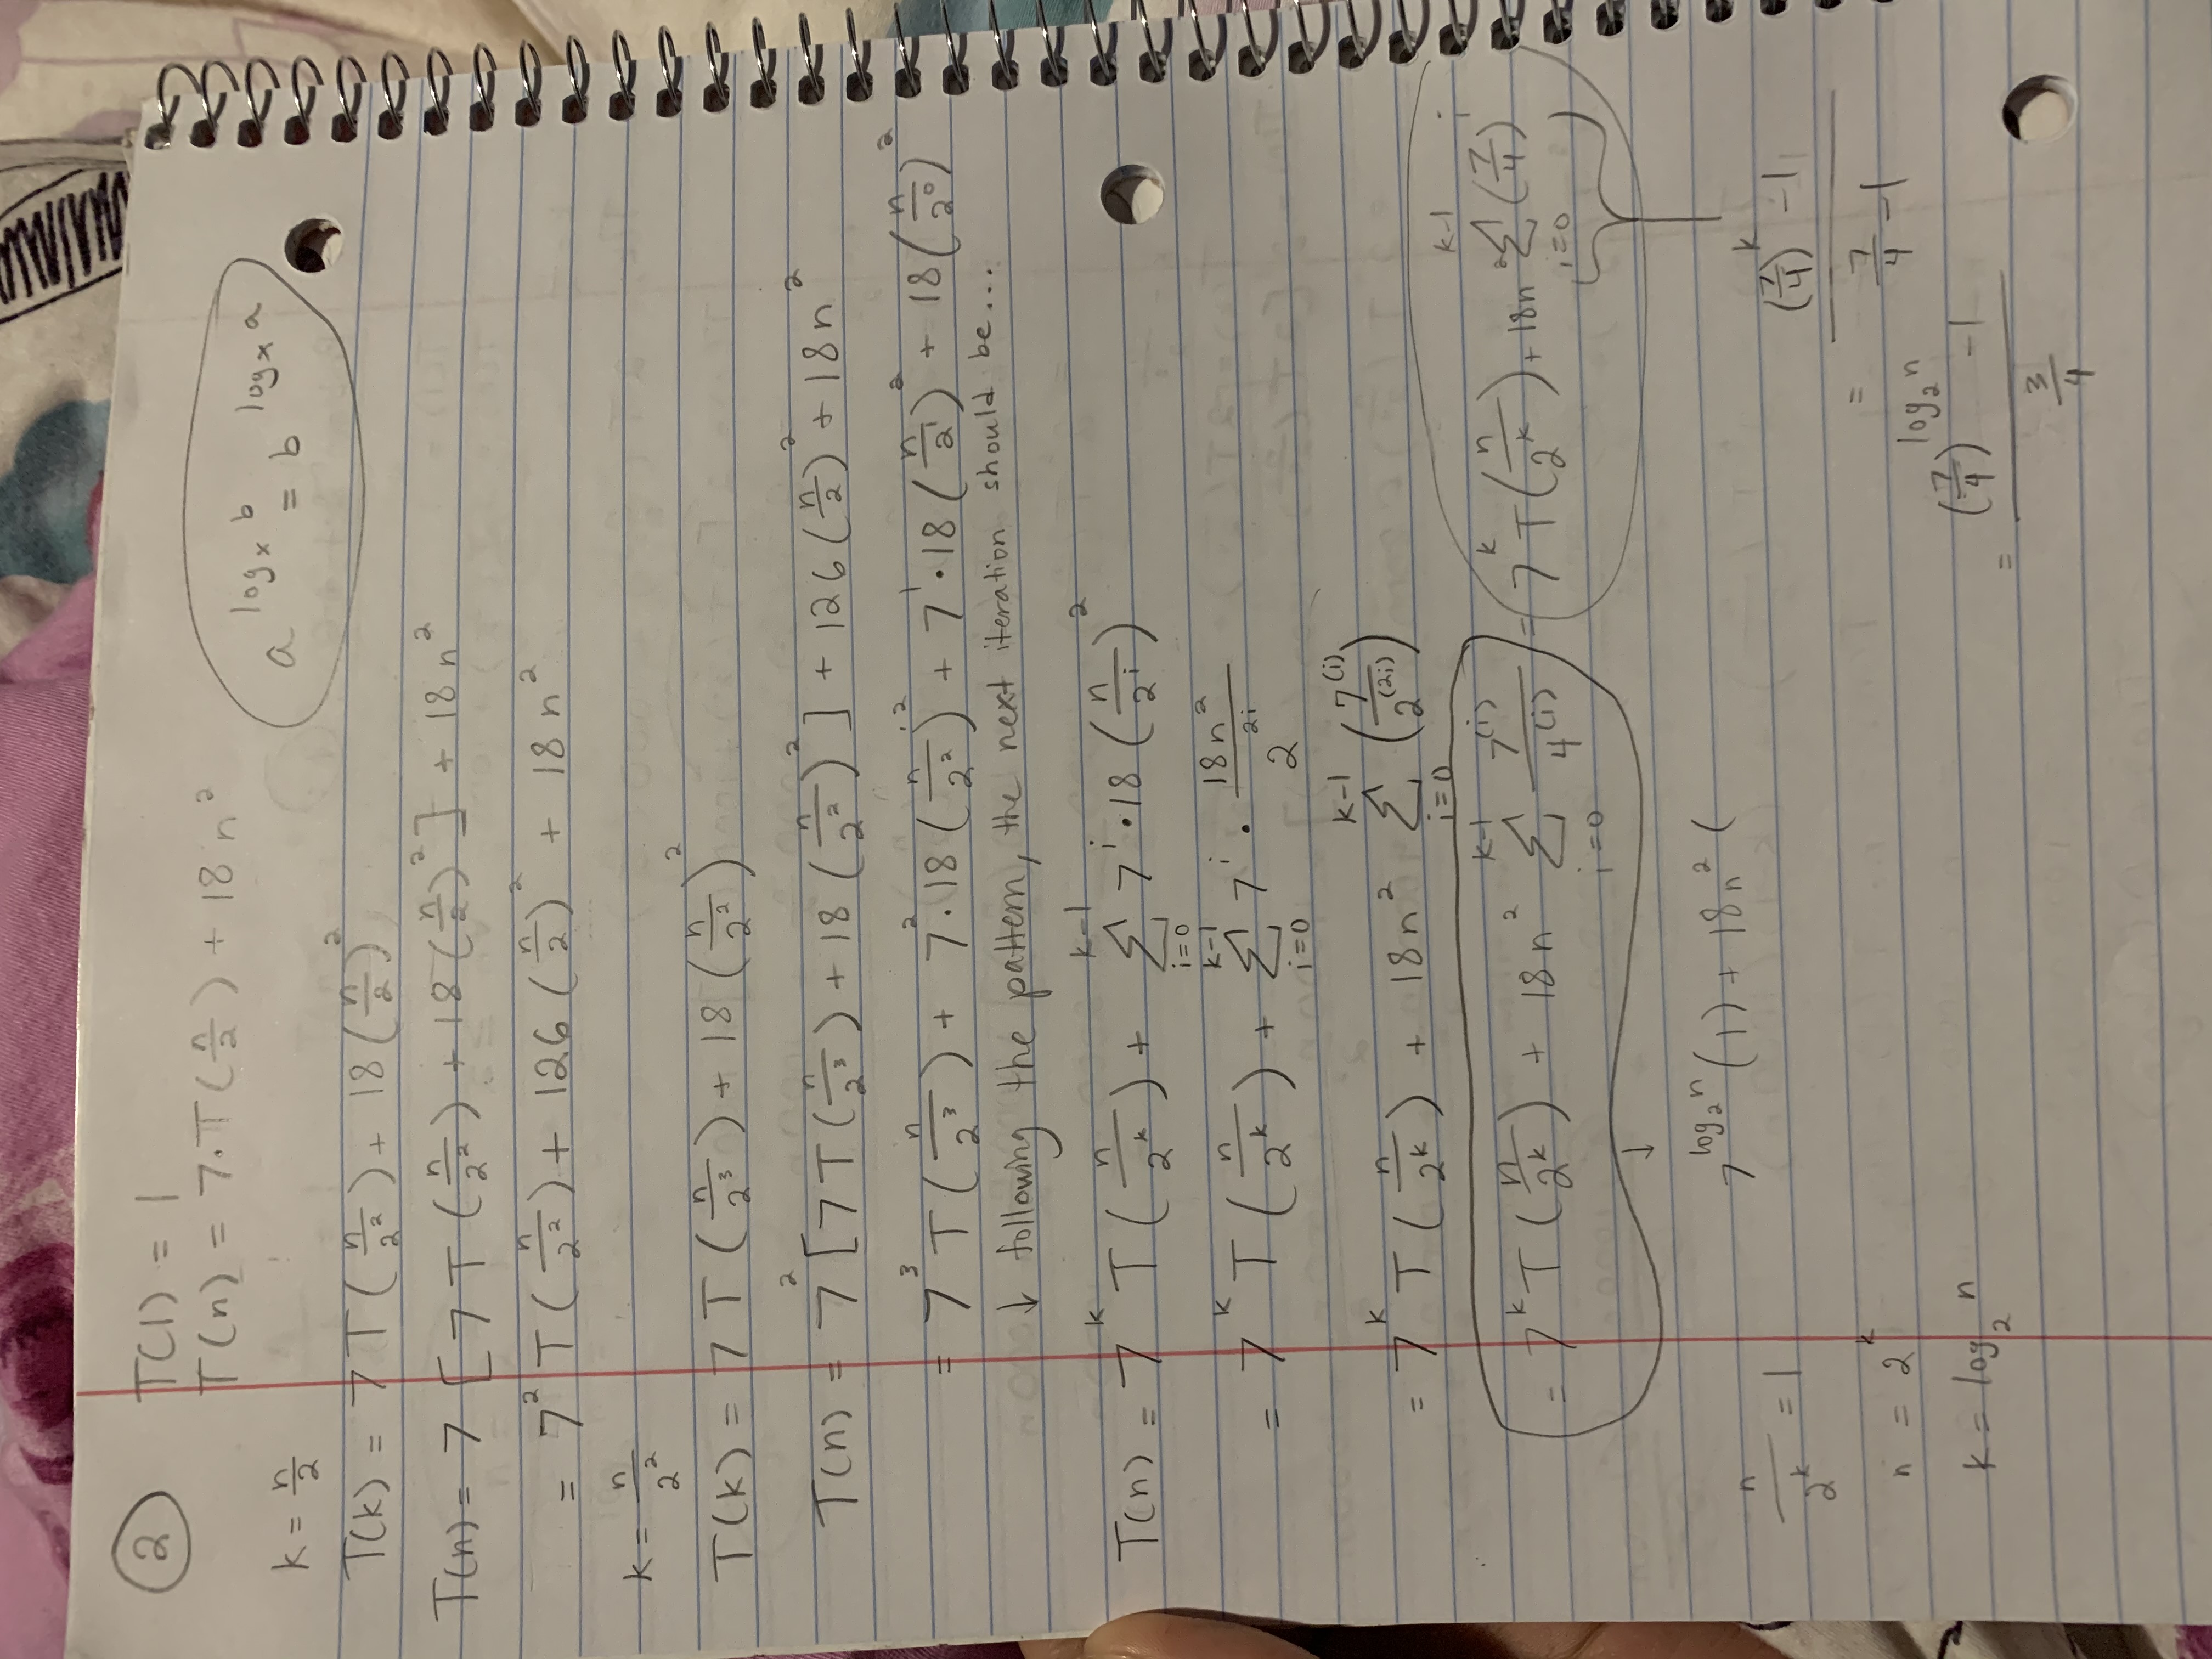 2
T(1) = 1
T(n) = 7·T(n/2) + 18n²
a^(log_x b) = b^(log_x a)
k = n/2
T(k) = 7T(n/2²) + 18(n/2)²
T(n) = 7[7T(n/2²) + 18(n/2)²] + 18n²
= 7²T(n/2²) + 126(n/2)² + 18n²
k = n/2²
T(k) = 7T(n/2³) + 18(n/2²)²
T(n) = 7²[7T(n/2³) + 18(n/2²)²] + 126(n/2)² + 18n²
= 7³T(n/2³) + 7²·18(n/2²)² + 7¹·18(n/2¹)² + 18(n/2⁰)²
↓ following the pattern, the next iteration should be...
T(n) = 7^k T(n/2^k) + Σ_{i=0}^{k-1} 7^i·18(n/2^i)²
= 7^k T(n/2^k) + Σ_{i=0}^{k-1} 7^i · 18n²/2^{2i}
= 7^k T(n/2^k) + 18n² Σ_{i=0}^{k-1} (7^(i)/2^(2i))
= 7^k T(n/2^k) + 18n² Σ_{i=0}^{k-1} 7^(i)/4^(i) = 7^k T(n/2^k) + 18n² Σ_{i=0}^{k-1} (7/4)^i
↓
7^(log₂ n) (1) + 18n² (
n/2^k = 1
n = 2^k
k = log₂ n
= ((7/4)^k - 1)/(7/4 - 1)
= ((7/4)^(log₂ n) - 1)/(3/4)